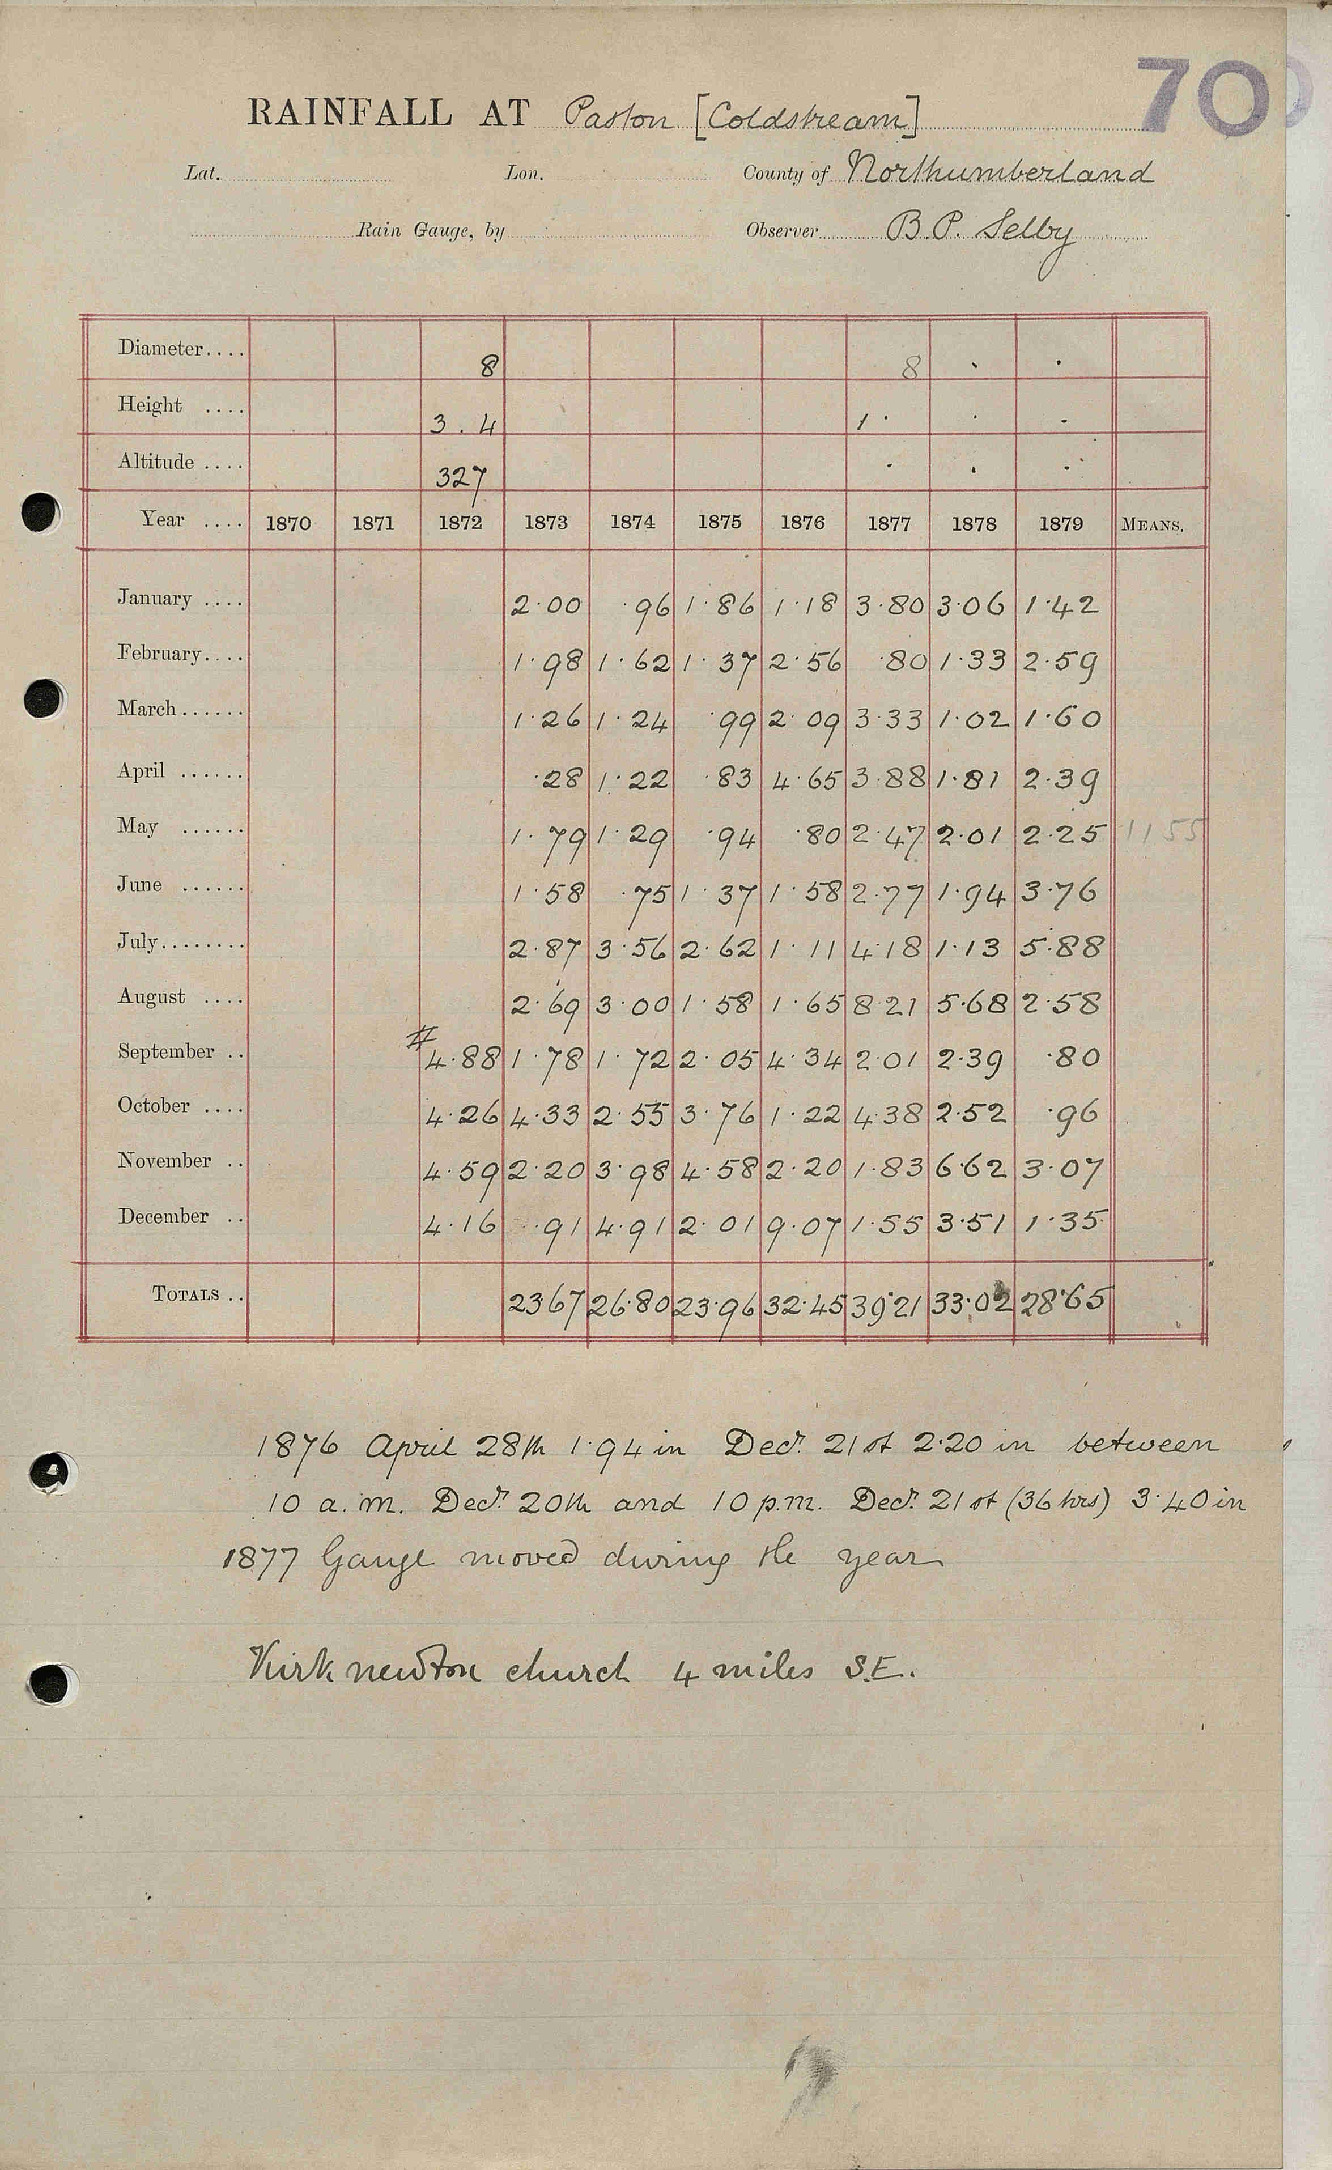 70
RAINFALL AT Paston [Coldstream]
Lat. Lon. County of Northumberland
Rain Gauge, by Observer B.P. Selby
Diameter.... 8 8 · ·
Height .... 3 . 4 1 · · ·
Altitude .... 327 · · ·
Year .... 1870 1871 1872 1873 1874 1875 1876 1877 1878 1879 MEANS.
January .... 2·00 ·96 1·86 1·18 3·80 3·06 1·42
February.... 1·98 1·62 1·37 2·56 ·80 1·33 2·59
March...... 1·26 1·24 ·99 2·09 3·33 1·02 1·60
April ...... ·28 1·22 ·83 4·65 3·88 1·81 2·39
May ...... 1·79 1·29 ·94 ·80 2·47 2·01 2·25 1155
June ...... 1·58 ·75 1·37 1·58 2·77 1·94 3·76
July........ 2·87 3·56 2·62 1·11 4·18 1·13 5·88
August .... 2·69 3·00 1·58 1·65 8·21 5·68 2·58
September .. #4·88 1·78 1·72 2·05 4·34 2·01 2·39 ·80
October .... 4·26 4·33 2·55 3·76 1·22 4·38 2·52 ·96
November .. 4·59 2·20 3·98 4·58 2·20 1·83 6·62 3·07
December .. 4·16 ·91 4·91 2·01 9·07 1·55 3·51 1·35
TOTALS .. 23 67 26·80 23·96 32·45 39·21 33·02 28·65
1876 April 28th 1·94 in Decr. 21st 2·20 in between
10 a.m. Decr. 20th and 10 p.m. Decr. 21st (36 hrs) 3·40 in
1877 Gauge moved during the year
Kirknewton church 4 miles S.E.